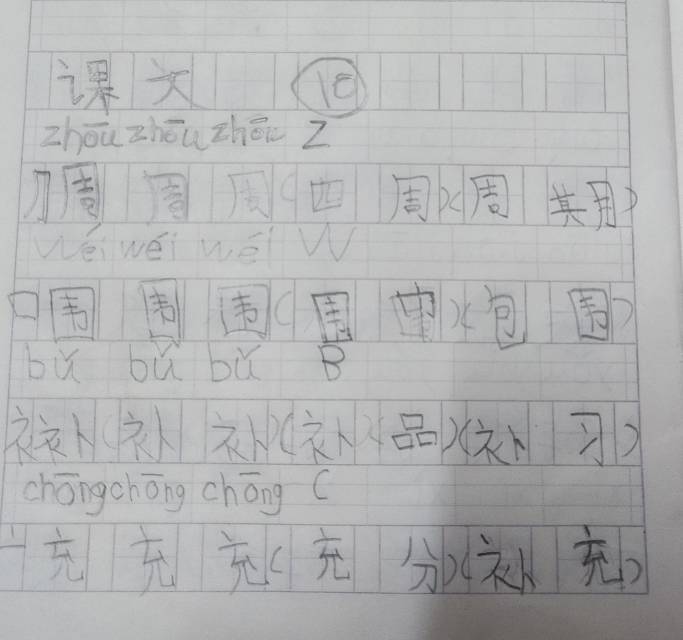 课文 18
zhōu zhōu zhōu Z
冂周 周 周(四周)(周期)
wéi wéi wéi W
囗围 围 围(围巾)(包围)
bǔ bǔ bǔ B
衤补(补 补)(补品)(补习)
chōng chōng chōng C
亠充 充 充(充分)(补充)